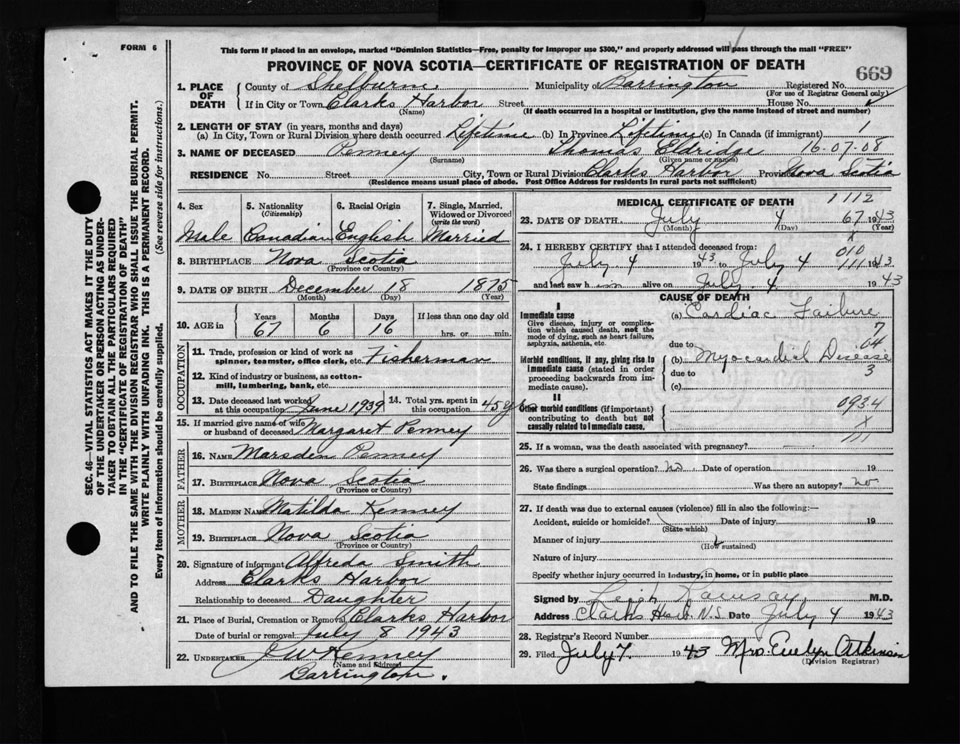 FORM 6
This form if placed in an envelope, marked "Dominion Statistics—Free, penalty for improper use $300," and properly addressed will pass through the mail "FREE"
PROVINCE OF NOVA SCOTIA—CERTIFICATE OF REGISTRATION OF DEATH
669
1. PLACE OF DEATH
County of Shelburne Municipality of Barrington Registered No.
(For use of Registrar General only)
If in City or Town Clarks Harbor Street House No.
(Name) (If death occurred in a hospital or institution, give the name instead of street and number)
2. LENGTH OF STAY (in years, months and days)
(a) In City, Town or Rural Division where death occurred Lifetime (b) In Province Lifetime (c) In Canada (if immigrant) 1
3. NAME OF DECEASED Penney Thomas Eldridge 16-07-08
(Surname) (Given name or names)
RESIDENCE No. Street City, Town or Rural Division Clarks Harbor Province Nova Scotia
(Residence means usual place of abode. Post Office Address for residents in rural parts not sufficient)
4. Sex 5. Nationality (Citizenship) 6. Racial Origin 7. Single, Married, Widowed or Divorced (write the word)
Male Canadian English Married
8. BIRTHPLACE Nova Scotia
(Province or Country)
9. DATE OF BIRTH December 18 1875
(Month) (Day) (Year)
10. AGE in Years Months Days If less than one day old
67 6 16 hrs. or min.
OCCUPATION
11. Trade, profession or kind of work as spinner, teamster, office clerk, etc. Fisherman
12. Kind of industry or business, as cotton-mill, lumbering, bank, etc.
13. Date deceased last worked at this occupation June 1939 14. Total yrs. spent in this occupation 45 yrs
15. If married give name of wife or husband of deceased Margaret Penney
FATHER
16. NAME Marsden Penney
17. BIRTHPLACE Nova Scotia
(Province or Country)
MOTHER
18. MAIDEN NAME Matilda Kenney
19. BIRTHPLACE Nova Scotia
(Province or Country)
20. Signature of informant Alfreda Smith
Address Clarks Harbor
Relationship to deceased Daughter
21. Place of Burial, Cremation or Removal Clarks Harbor
Date of burial or removal July 8 1943
22. UNDERTAKER J W Kenney
(Name and Address)
Barrington.
MEDICAL CERTIFICATE OF DEATH
1112
23. DATE OF DEATH July 4 67 1943
(Month) (Day) (Year)
24. I HEREBY CERTIFY that I attended deceased from:
x
010
July 4 1943 to July 4 111 1943
and last saw him alive on July 4 1943
CAUSE OF DEATH
I
Immediate cause
Give disease, injury or complication which caused death, not the mode of dying, such as heart failure, asphyxia, asthenia, etc.
(a) Cardiac Failure
7
due to 04
Morbid conditions, if any, giving rise to immediate cause (stated in order proceeding backwards from immediate cause).
(b) Myocardial Disease
due to 3
(c)
II
Other morbid conditions (if important) contributing to death but not causally related to immediate cause.
0934
x
111
25. If a woman, was the death associated with pregnancy?
26. Was there a surgical operation? no Date of operation 19
State findings Was there an autopsy? no
27. If death was due to external causes (violence) fill in also the following:—
Accident, suicide or homicide? Date of injury 19
(State which)
Manner of injury
(How sustained)
Nature of injury
Specify whether injury occurred in industry, in home, or in public place
Signed by M.D.
Address Clarks Harb. N.S Date July 4 1943
28. Registrar's Record Number
29. Filed July 7. 1943 Mrs. Evelyn Atkinson
(Division Registrar)
SEC. 46—VITAL STATISTICS ACT MAKES IT THE DUTY
OF THE UNDERTAKER OR PERSON ACTING AS UNDER-
TAKER TO OBTAIN ALL THE PARTICULARS REQUIRED
IN THE "CERTIFICATE OF REGISTRATION OF DEATH"
AND TO FILE THE SAME WITH THE DIVISION REGISTRAR WHO SHALL ISSUE THE BURIAL PERMIT.
WRITE PLAINLY WITH UNFADING INK. THIS IS A PERMANENT RECORD.
Every item of information should be carefully supplied. (See reverse side for instructions.)